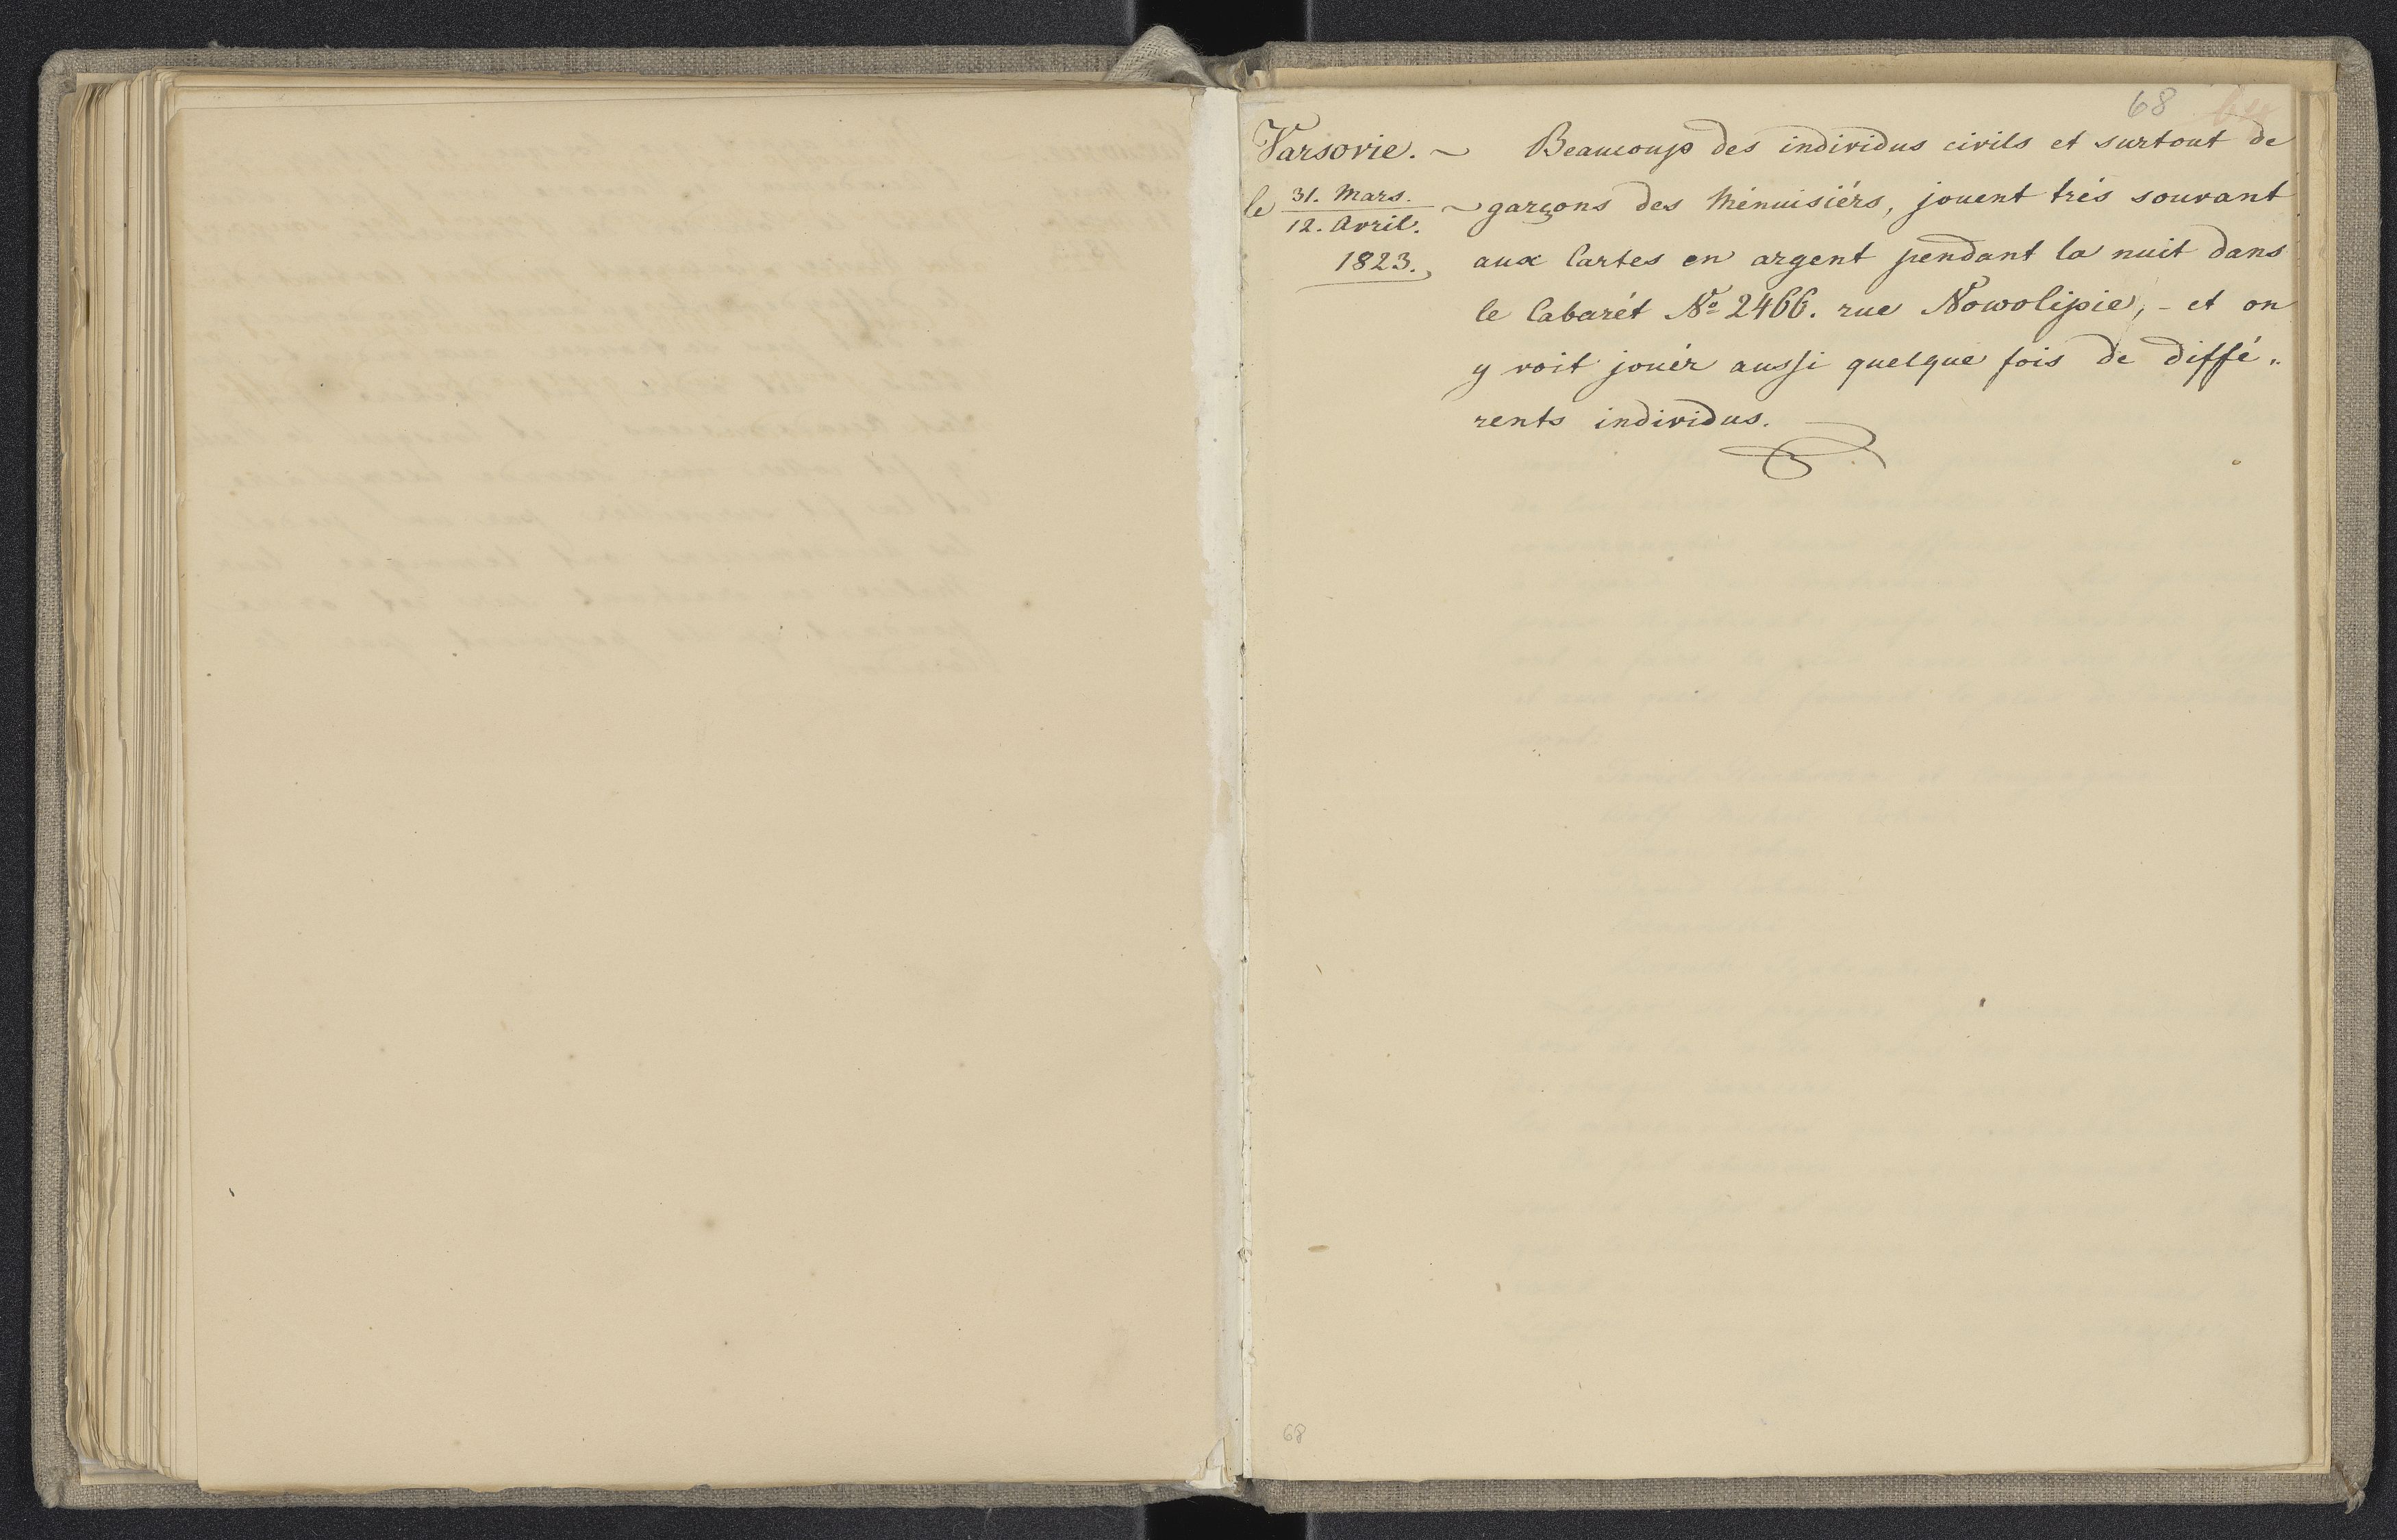 68
Varsovie. ~ Beaucoup des individus civils et surtout de
le 31. Mars. ~ garçons des Ménuisiérs, jouent trés souvant
12. Avril.
1823., aux Cartes en argent pendant la nuit dans
le Cabarét No 2466. rue Nowolipie, - et on
y voit jouér aussi quelque fois de diffé„
rents individus.
68